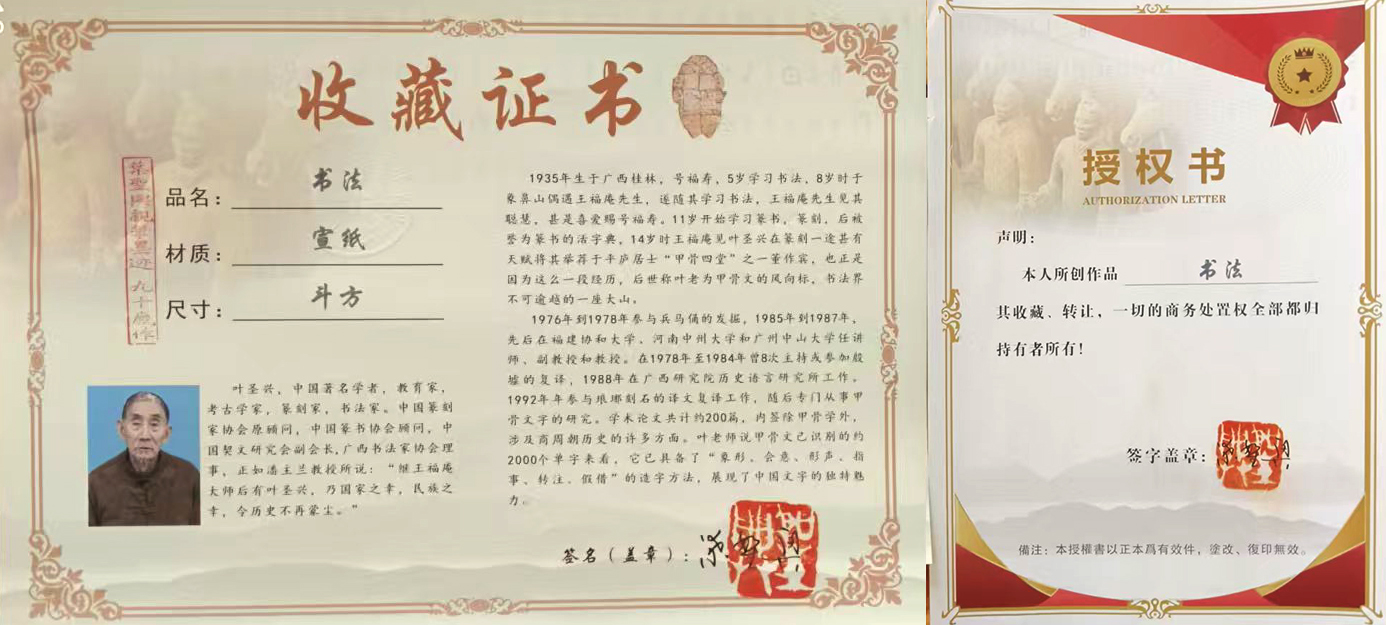 收藏证书
叶圣兴亲笔墨迹 九十岁作
品名：书法
材质：宣纸
尺寸：斗方
叶圣兴，中国著名学者，教育家，
考古学家，篆刻家，书法家。中国篆刻
家协会原顾问，中国篆书协会顾问，中
国契文研究会副会长，广西书法家协会理
事，正如潘主兰教授所说：“继王福庵
大师后有叶圣兴，乃国家之幸，民族之
幸，令历史不再蒙尘。”
1935年生于广西桂林，号福寿，5岁学习书法，8岁时于
象鼻山偶遇王福庵先生，遂随其学习书法，王福庵先生见其
聪慧，甚是喜爱赐号福寿。11岁开始学习篆书，篆刻，后被
誉为篆书的活字典，14岁时王福庵见叶圣兴在篆刻一途甚有
天赋将其举荐于平庐居士“甲骨四堂”之一董作宾，也正是
因为这么一段经历，后世称叶老为甲骨文的风向标，书法界
不可逾越的一座大山。
1976年到1978年参与兵马俑的发掘，1985年到1987年，
先后在福建协和大学、河南中州大学和广州中山大学任讲
师、副教授和教授。在1978年至1984年曾8次主持或参加殷
墟的复译，1988年在广西研究院历史语言研究所工作。
1992年年参与琅琊刻石的译文复译工作，随后专门从事甲
骨文字的研究。学术论文共计约200篇，内签除甲骨学外，
涉及商周朝历史的许多方面。叶老师说甲骨文已识别的约
2000个单字来看，它已具备了“象形、会意、形声、指
事、转注、假借”的造字方法，展现了中国文字的独特魅
力。
签名（盖章）：
授权书
AUTHORIZATION LETTER
声明：
本人所创作品 书法
其收藏、转让，一切的商务处置权全部都归
持有者所有！
签字盖章：
備注：本授權書以正本爲有效件，塗改、復印無效。